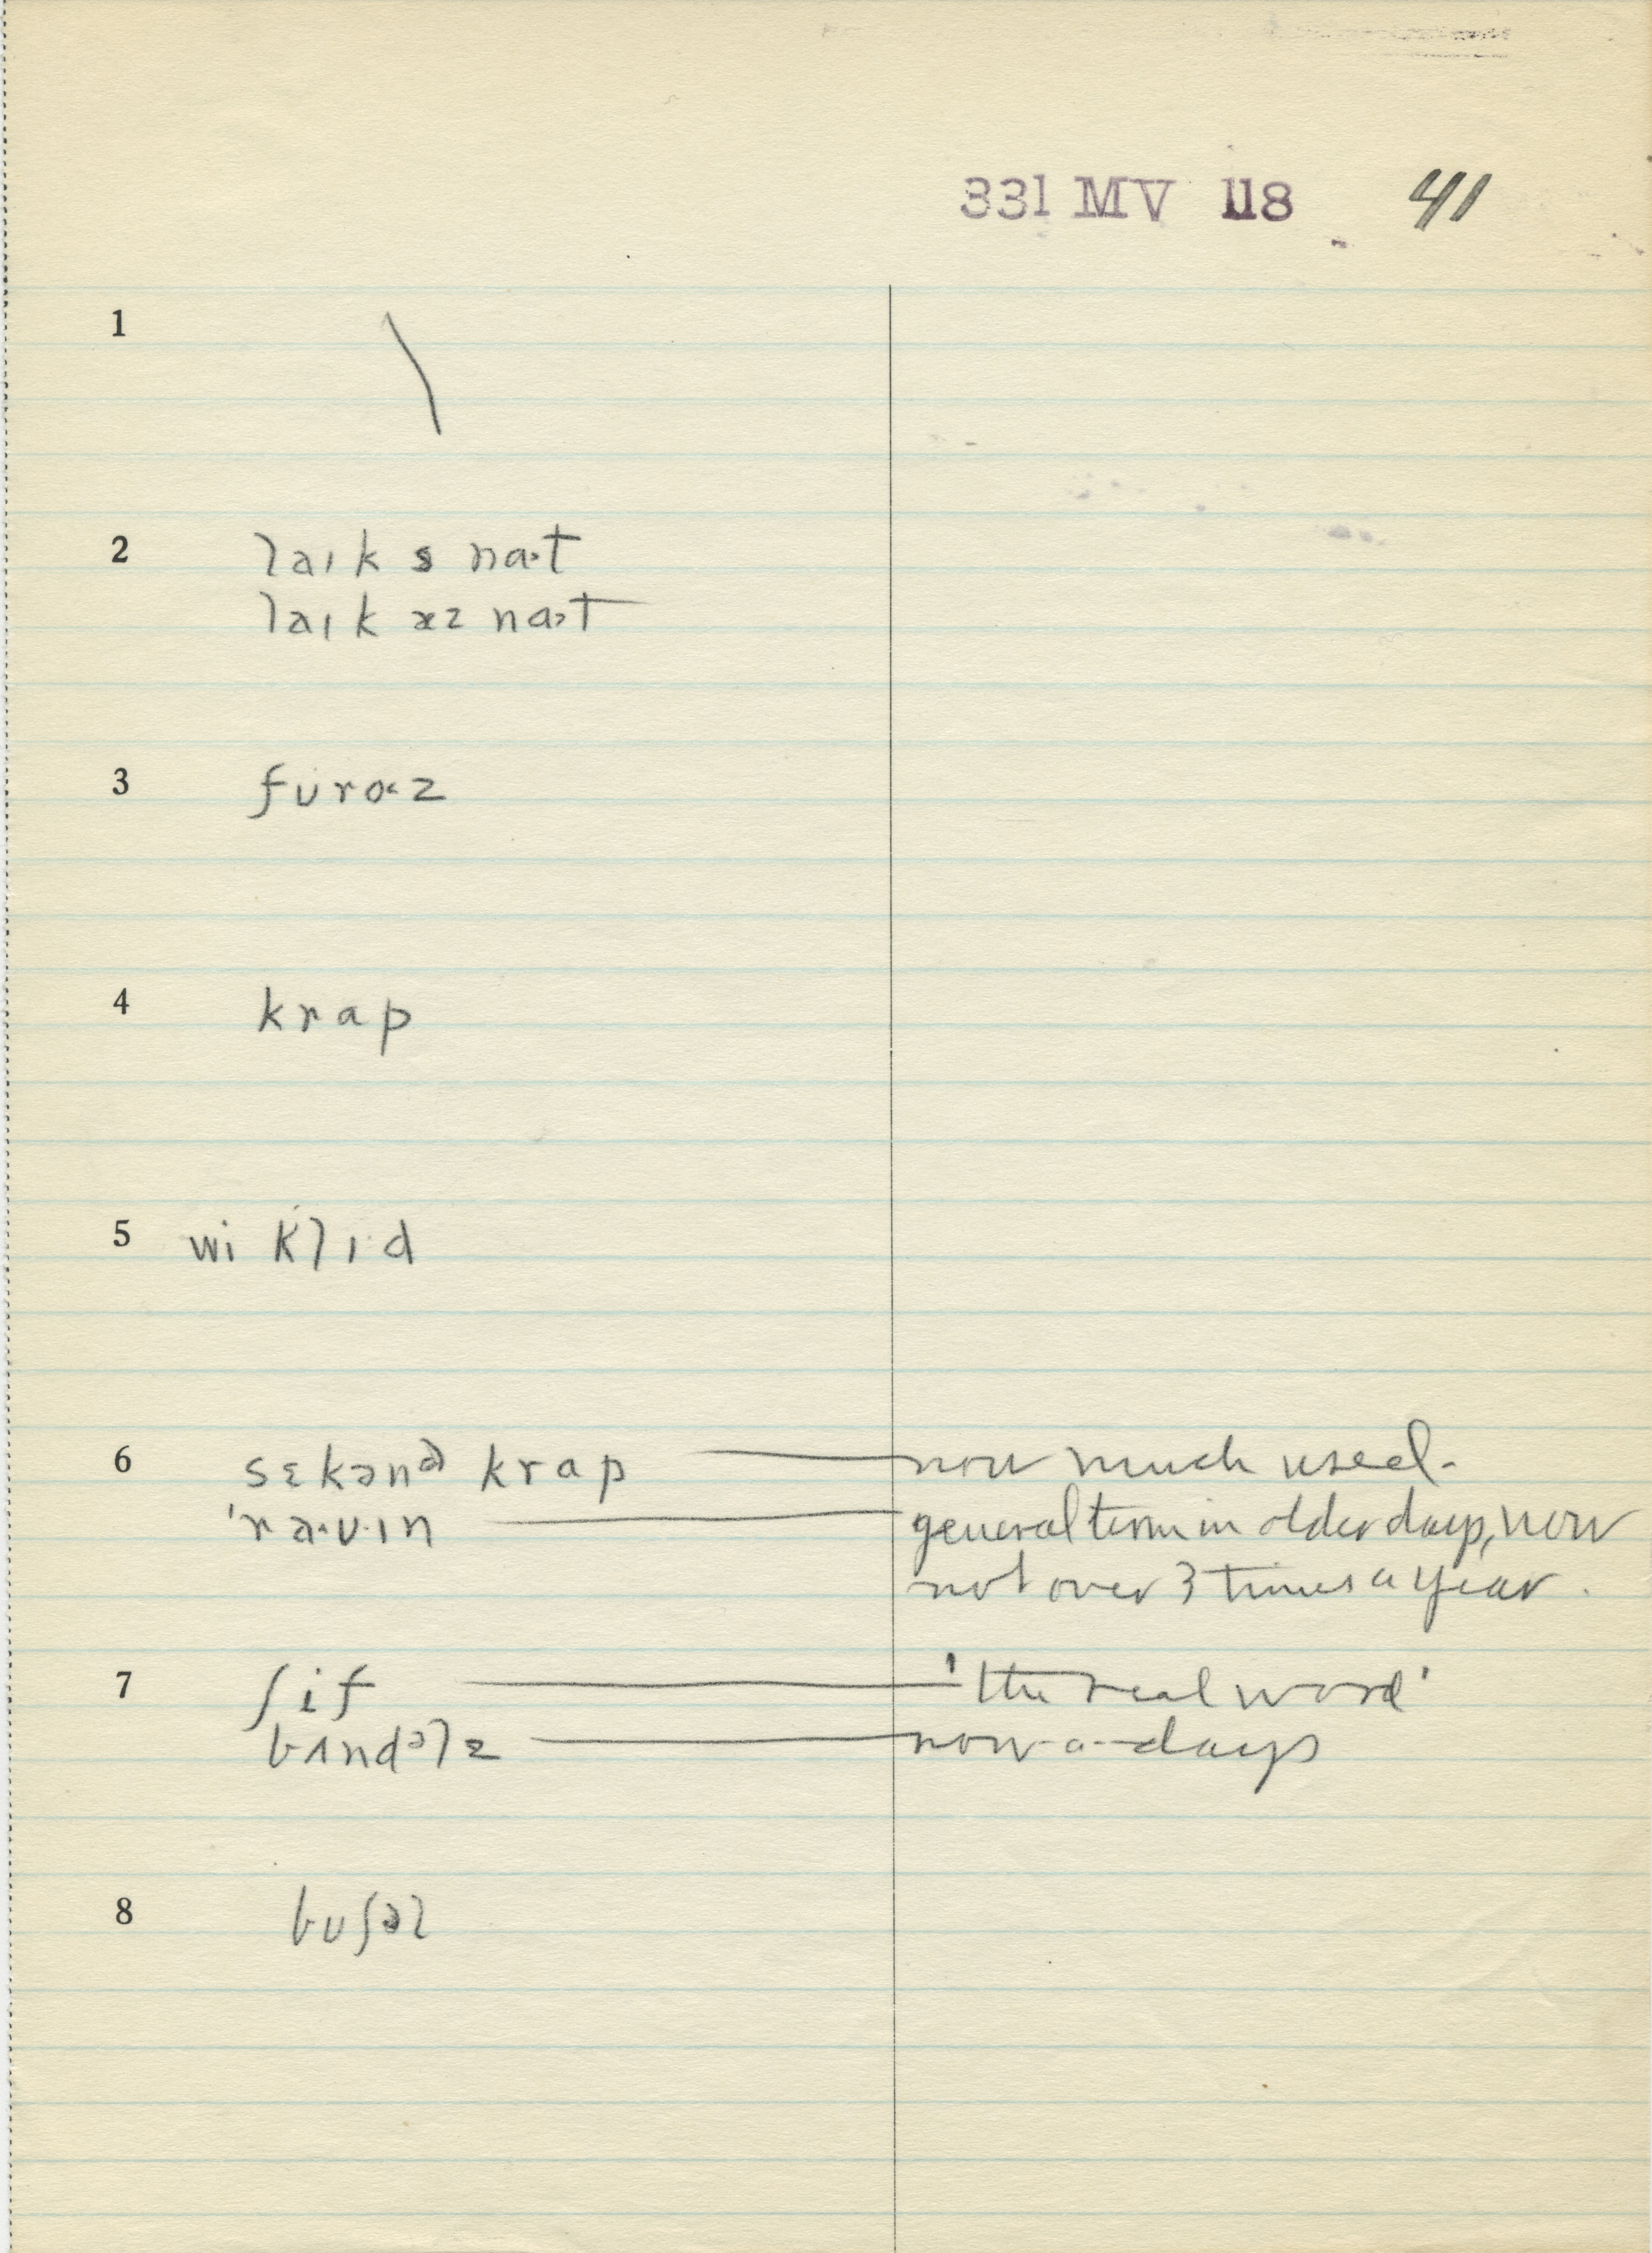 331 MV 118 41
1 \
2 laɪk s na·t
laɪk æz na·t
3 fʊroz
4 krap
5 wi klɪ·d
6 sɛkənd krap — now much used.
'ra·v·ɪn — general term in older days, now
not over 3 times a year.
7 ʃif — 'the real word'
bʌndəlz — now-a-days
8 bʊʃəl